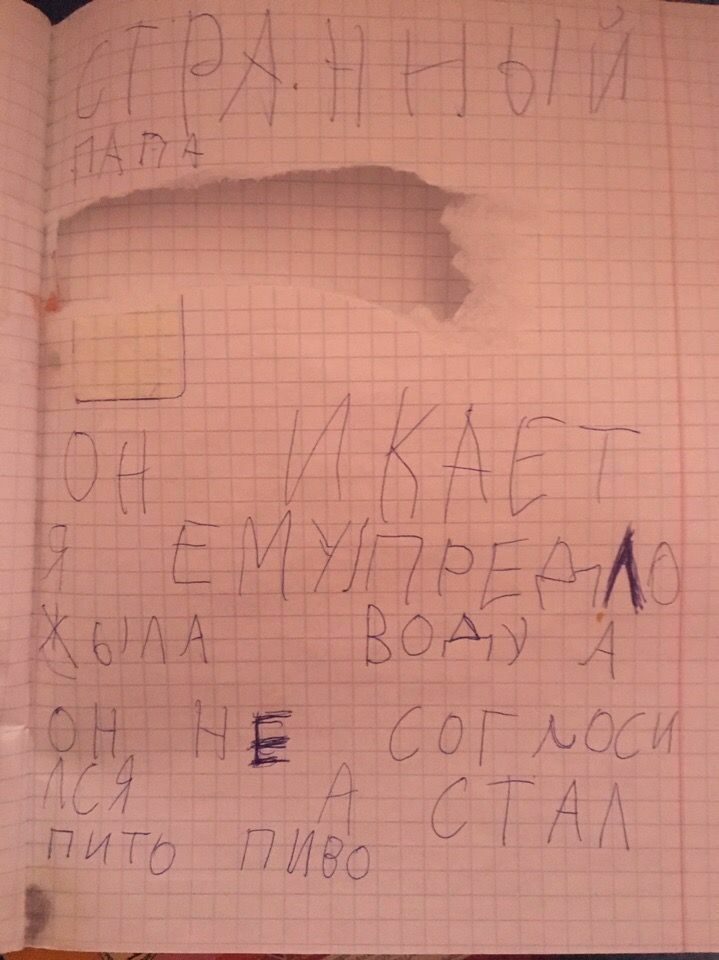 СТРАННЫЙ
ПАПА
ОН ИКАЕТ
Я ЕМУ ПРЕДЛО
ЖЫЛА ВОДУ А
ОН НЕ СОГЛОСИ
ЛСЯ А СТАЛ
ПИТО ПИВО